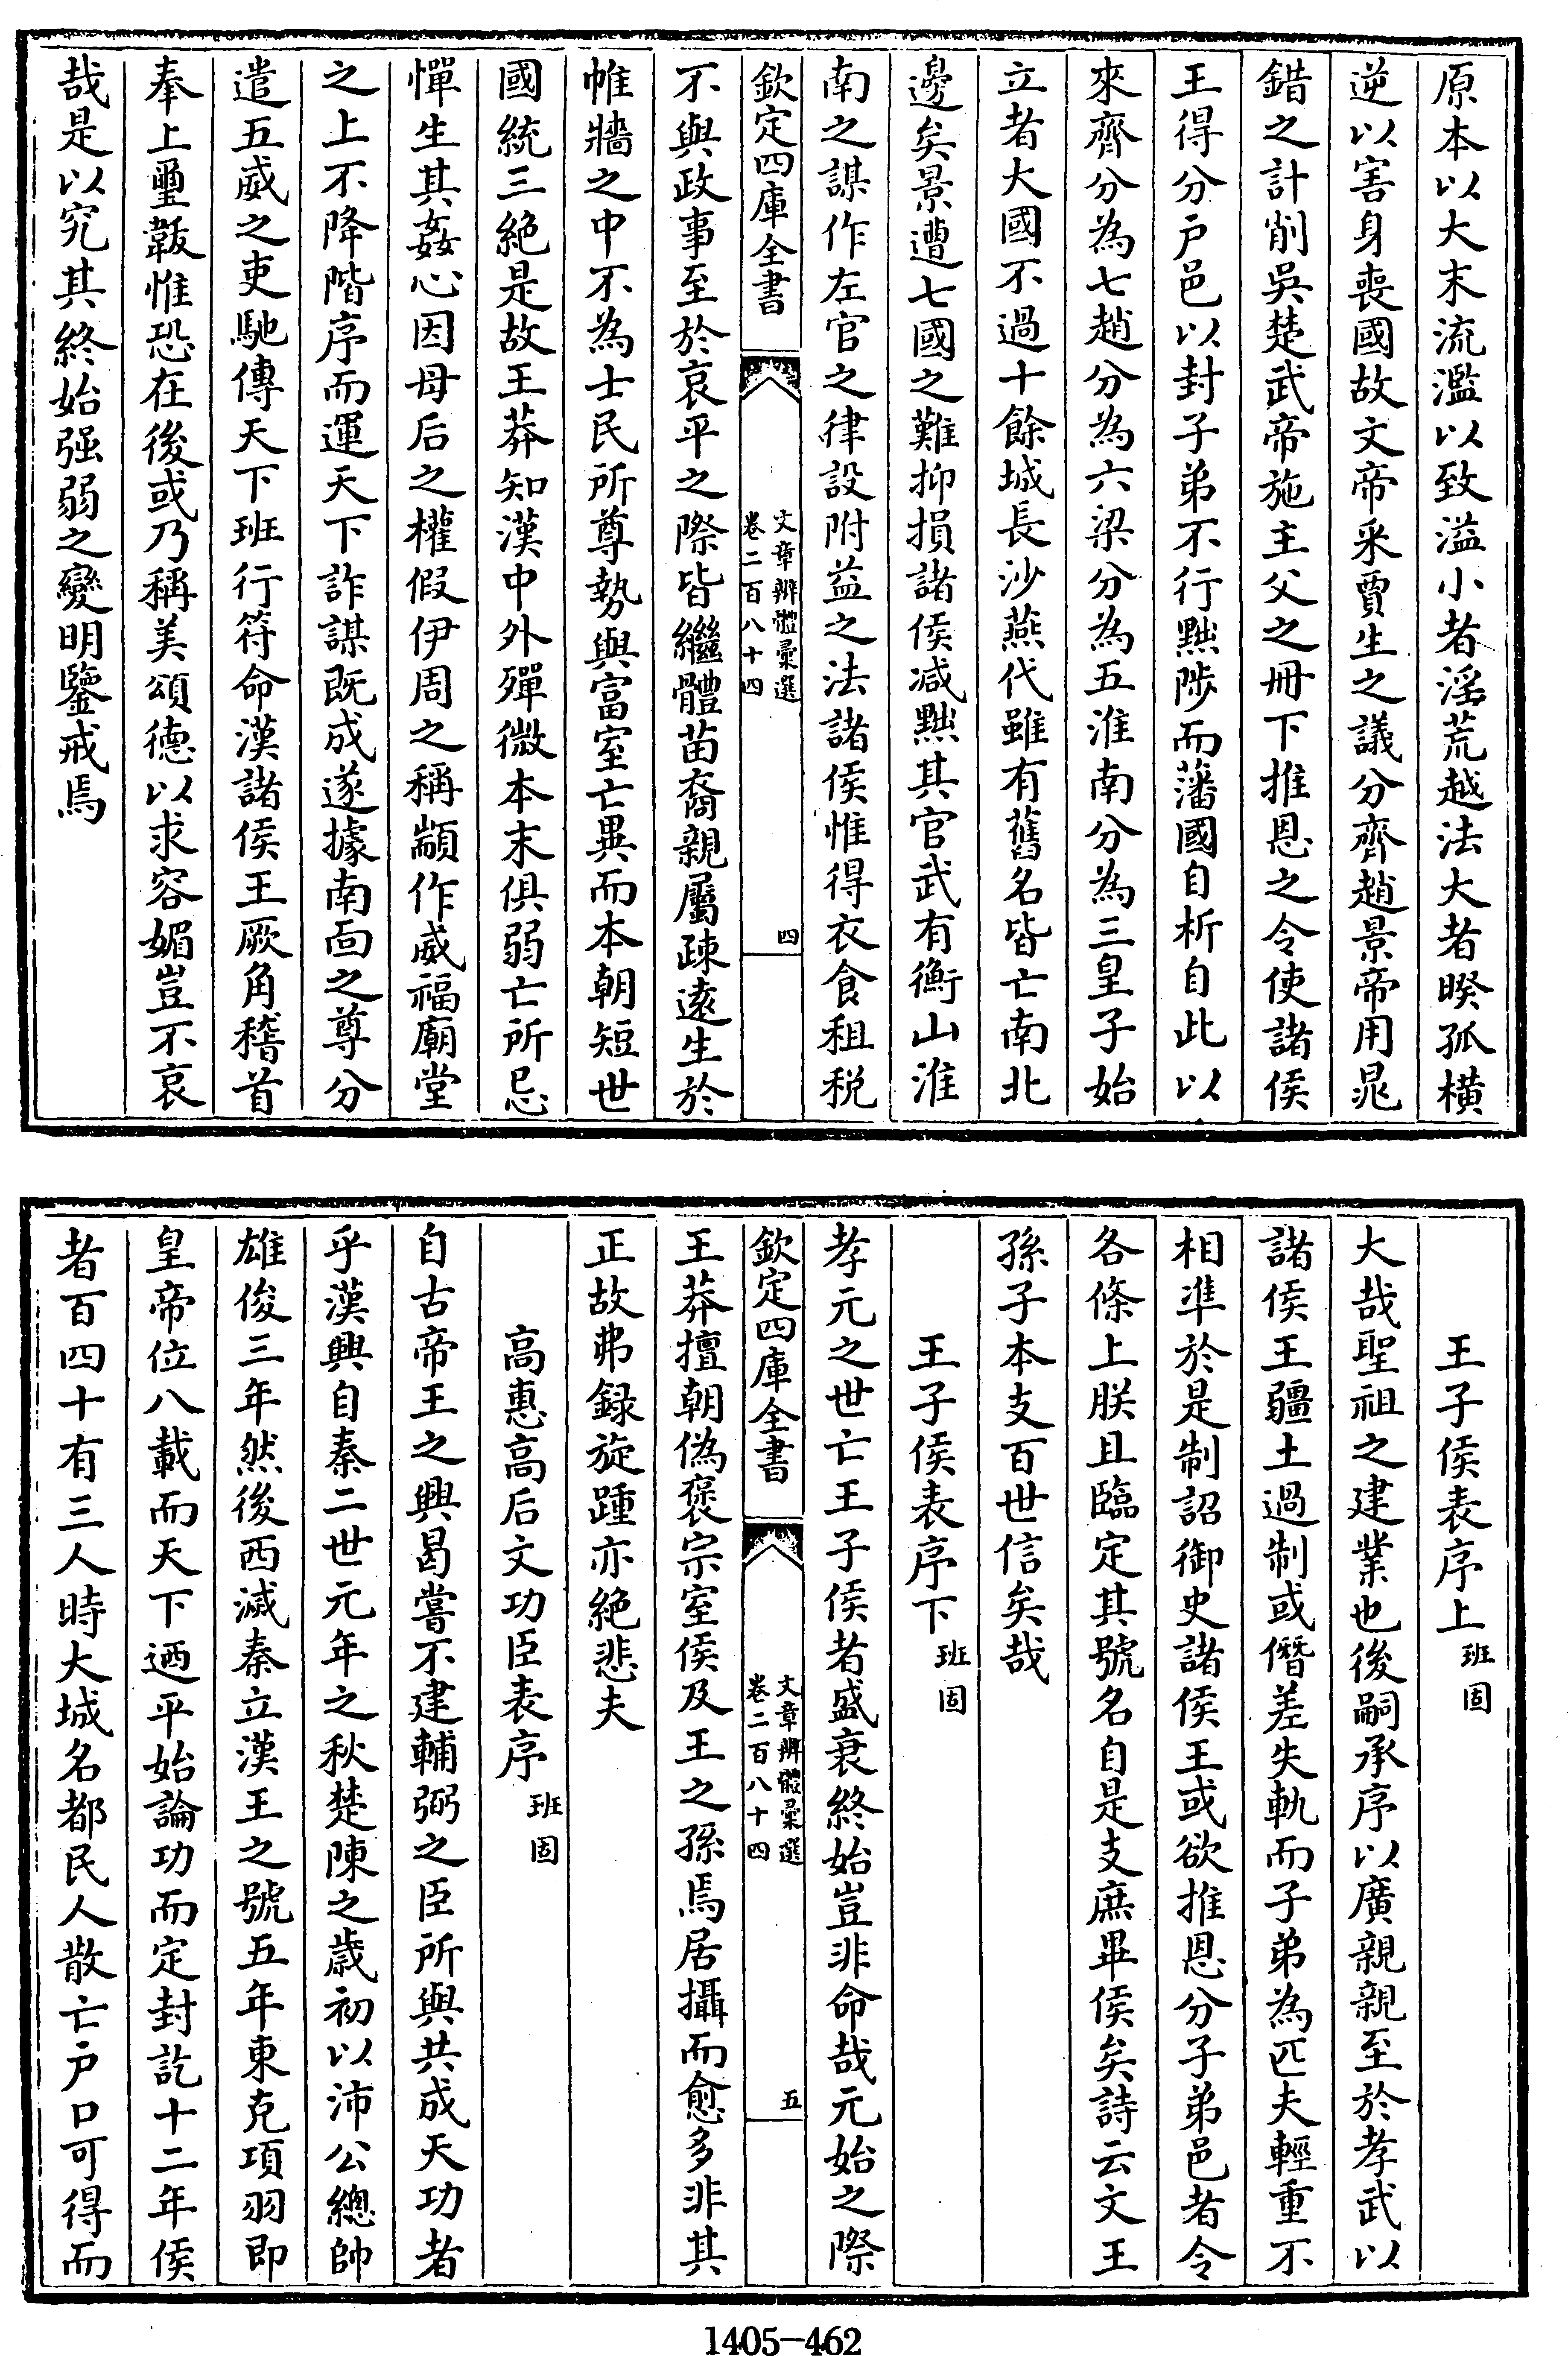 原本以大末流濫以致溢小者淫荒越法大者睽孤橫
逆以害身喪國故文帝采賈生之議分齊趙景帝用晁
錯之計削吳楚武帝施主父之冊下推恩之令使諸侯
王得分戶邑以封子弟不行黜陟而藩國自析自此以
來齊分為七趙分為六梁分為五淮南分為三皇子始
立者大國不過十餘城長沙燕代雖有舊名皆亡南北
邊矣景遭七國之難抑損諸侯減黜其官武有衡山淮
南之謀作左官之律設附益之法諸侯惟得衣食租稅
欽定四庫全書
文章辨體彙選
卷二百八十四
四
不與政事至於哀平之際皆繼體苗裔親屬疎遠生於
帷牆之中不為士民所尊勢與富室亡異而本朝短世
國統三絕是故王莽知漢中外殫微本末俱弱亡所忌
憚生其姦心因母后之權假伊周之稱顓作威福廟堂
之上不降階序而運天下詐謀既成遂據南面之尊分
遣五威之吏馳傳天下班行符命漢諸侯王厥角稽首
奉上璽韍惟恐在後或乃稱美頌德以求容媚豈不哀
哉是以究其終始强弱之變明鑒戒焉
王子侯表序上 班固
大哉聖祖之建業也後嗣承序以廣親親至於孝武以
諸侯王疆土過制或僭差失軌而子弟為匹夫輕重不
相準於是制詔御史諸侯王或欲推恩分子弟邑者令
各條上朕且臨定其號名自是支庶畢侯矣詩云文王
孫子本支百世信矣哉
王子侯表序下 班固
孝元之世亡王子侯者盛衰終始豈非命哉元始之際
欽定四庫全書
文章辨體彙選
卷二百八十四
五
王莽擅朝偽褒宗室侯及王之孫焉居攝而愈多非其
正故弗録旋踵亦絕悲夫
高惠高后文功臣表序 班固
自古帝王之興曷嘗不建輔弼之臣所與共成天功者
乎漢興自秦二世元年之秋楚陳之歲初以沛公總帥
雄俊三年然後西滅秦立漢王之號五年東克項羽即
皇帝位八載而天下迺平始論功而定封訖十二年侯
者百四十有三人時大城名都民人散亡戶口可得而
1405-462